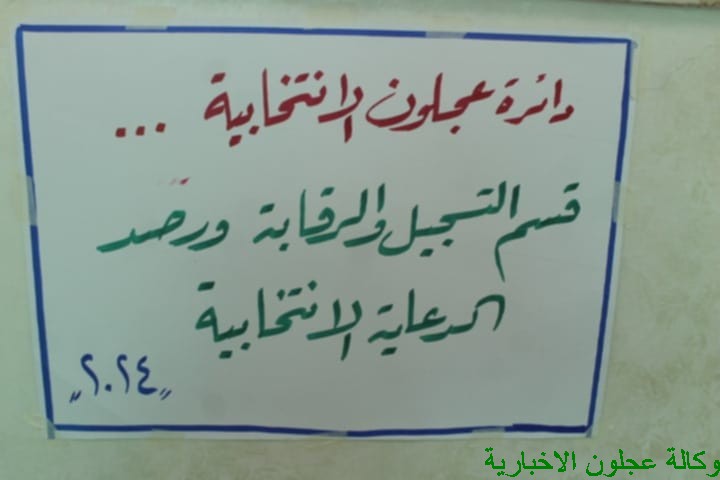 دائرة عجلون الانتخابية ...
قسم التسجيل والرقابة ورصد
الدعاية الانتخابية
"٢٠٢٤"
وكالة عجلون الاخبارية